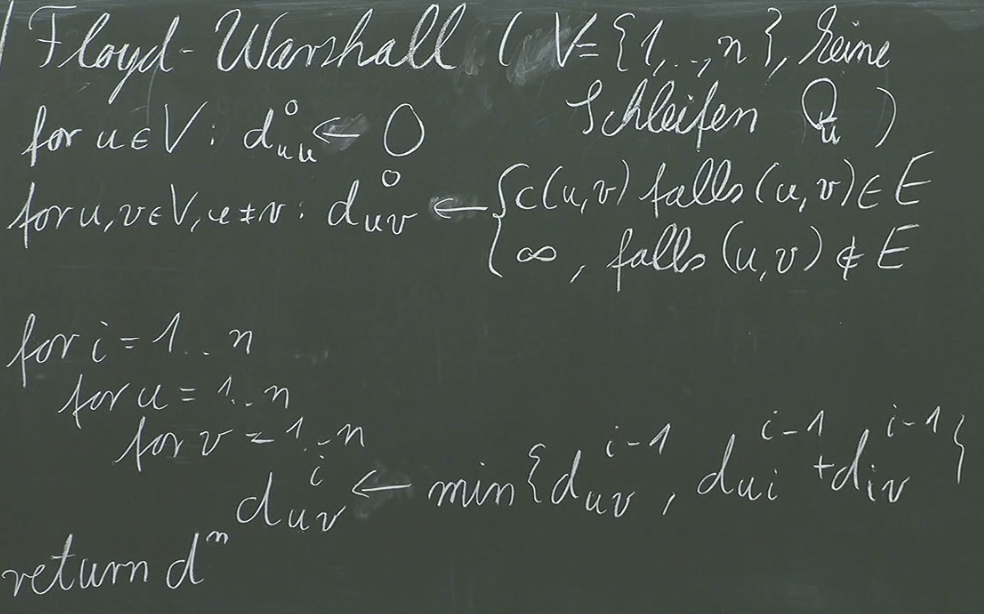 Floyd-Warshall ( V={1,..,n}, keine
Schleifen u )
for u∈V: d⁰ᵤᵤ ← 0
for u,v∈V, u≠v: d⁰ᵤᵥ ← { c(u,v) falls (u,v)∈E
∞, falls (u,v)∉E
for i = 1..n
for u = 1..n
for v = 1..n
dⁱᵤᵥ ← min{dᵤᵥ^{i-1}, dᵤᵢ^{i-1} + dᵢᵥ^{i-1}}
return dⁿ